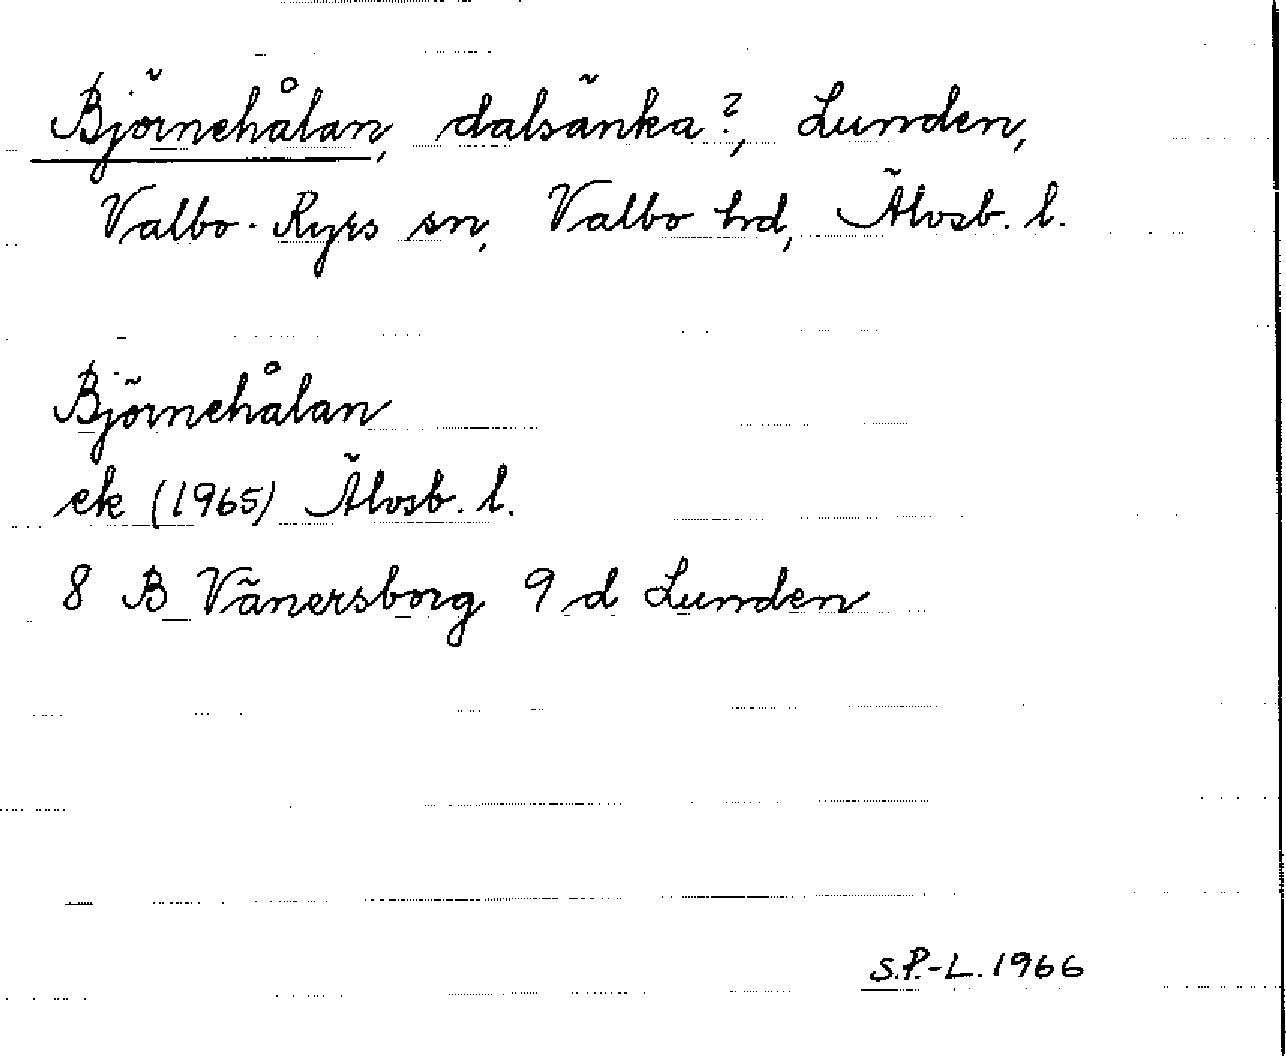 Björnehålan, dalsänka?, Lunden,
Valbo-Ryrs sn, Valbo hd, Älvsb. l.
Björnehålan
ek (1965) Älvsb. l.
8 B Vänersborg 9 d Lunden
S.P.-L. 1966